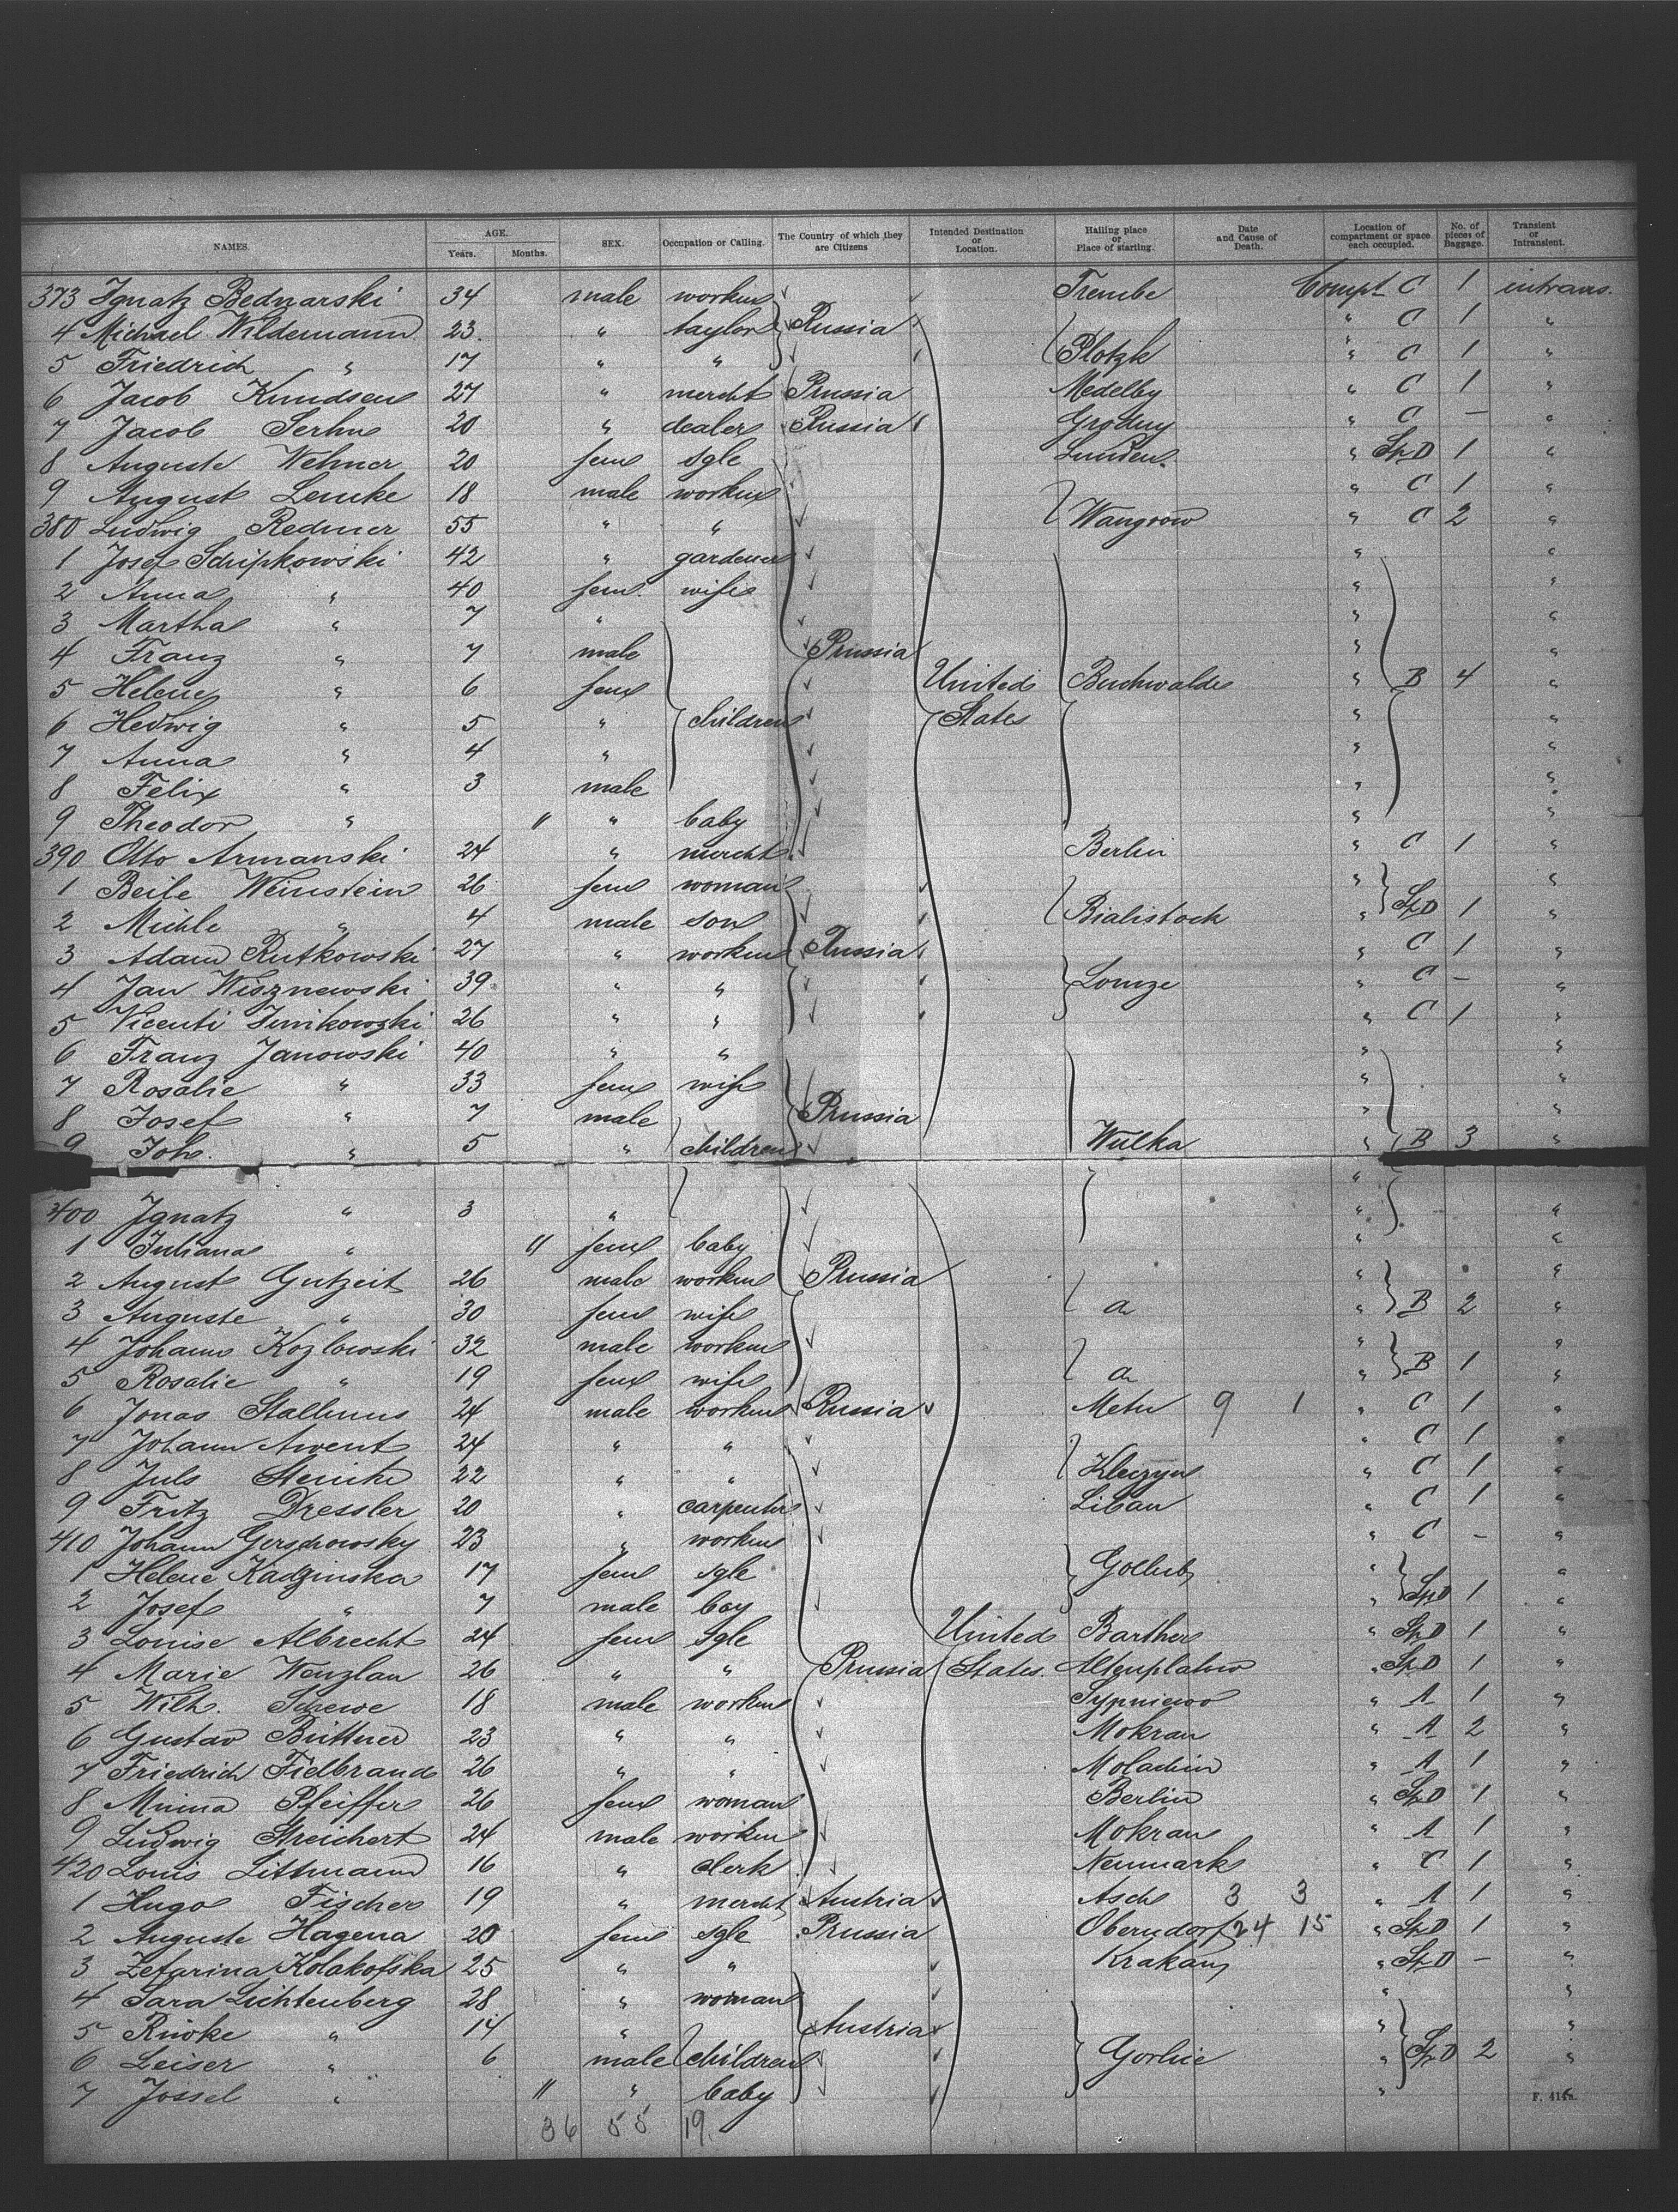 NAMES. AGE. Years. Months. SEX. Occupation or Calling. The Country of which they are Citizens Intended Destination or Location. Hailing place or Place of starting. Date and Cause of Death. Location of compartment or space each occupied. No. of pieces of Baggage. Transient or Intransient.
373 Ignatz Bednarski 34 male workm Trembe Compt C 1 intrans.
4 Michael Wildemann 23 " taylor Russia " C 1 "
5 Friedrich " 17 " " Plotzk " C 1 "
6 Jacob Knudsen 27 " mercht Prussia Medelby " C 1 "
7 Jacob Serhu 20 " dealer Russia Grodny " C — "
8 Auguste Wehner 20 fem sgle Lunden " Sp D 1 "
9 August Lemke 18 male workm " C 1 "
380 Ludwig Redmer 55 " " Wangrow " C 2 "
1 Josef Scripkowski 42 " gardener " "
2 Anna " 40 fem. wife " "
3 Martha " 7 " " "
4 Franz " 7 male Prussia " "
5 Helene " 6 fem United Buchwalde " B 4 "
6 Hedwig " 5 " children States " "
7 Anna " 4 " " "
8 Felix " 3 male " "
9 Theodor " 11 " baby " "
390 Otto Armanski 24 " mercht Berlin " C 1 "
1 Beile Weinstein 26 fem woman " "
2 Michle " 4 male son Bialistock " Sp D 1 "
3 Adam Rutkowski 27 " workm Russia " C 1 "
4 Jan Wisznewski 39 " " Lomze " C — "
5 Vicenti 26 " " " C 1 "
6 Franz Janowski 40 " " " "
7 Rosalie " 33 fem wife " "
8 Josef " 7 male Prussia " "
9 Joh. " 5 " children Wulka " B 3 "
400 Ignatz " 3 " " "
1 Juliana " 11 fem baby " "
2 August Gutzeit 26 male workm Prussia " "
3 Auguste " 30 fem wife a " B 2 "
4 Johann Kozlowski 32 male workm " "
5 Rosalie " 19 fem wife a " B 1 "
6 Jonas Stallmus 24 male workm Russia 9 1 " C 1 "
7 Johann Arent 24 " " " C 1 "
8 Juls Steinke 22 " " " C 1 "
9 Fritz Dressler 20 " carpenter Libau " C 1 "
410 Johann Gerschowsky 23 " workm " C — "
1 Helene Kadzinska 17 fem sgle Gollub " "
2 Josef " 7 male boy " Sp D 1 "
3 Louise Albrecht 24 fem sgle United " Sp D 1 "
4 Marie Wenzlau 26 " " Prussia States Altenplatow " Sp D 1 "
5 Wilh. Schewe 18 male workm Sypniewo " A 1 "
6 Gustav Büttner 23 " " Mokran " A 2 "
7 Friedrich Fielbrand 26 " " " A 1 "
8 Minna Pfeiffer 26 fem woman Berlin " Sp D 1 "
9 Ludwig Streichert 24 male workm Mokran " A 1 "
420 Louis Littmann 16 " clerk Neumark " C 1 "
1 Hugo Fischer 19 " mercht Austria Asch 3 3 " A 1 "
2 Auguste Hagena 20 fem sgle Prussia Oberndorf 24 15 " Sp D 1 "
3 Zefarina Kolakofska 25 " " Krakau " Sp D — "
4 Sara Lichtenberg 28 " woman " "
5 Riwke " 14 " Austria " "
6 Leiser " 6 male children Gorlice " Sp D 2 "
7 Jossel " 11 " baby "
F. 414a.
36 55 19